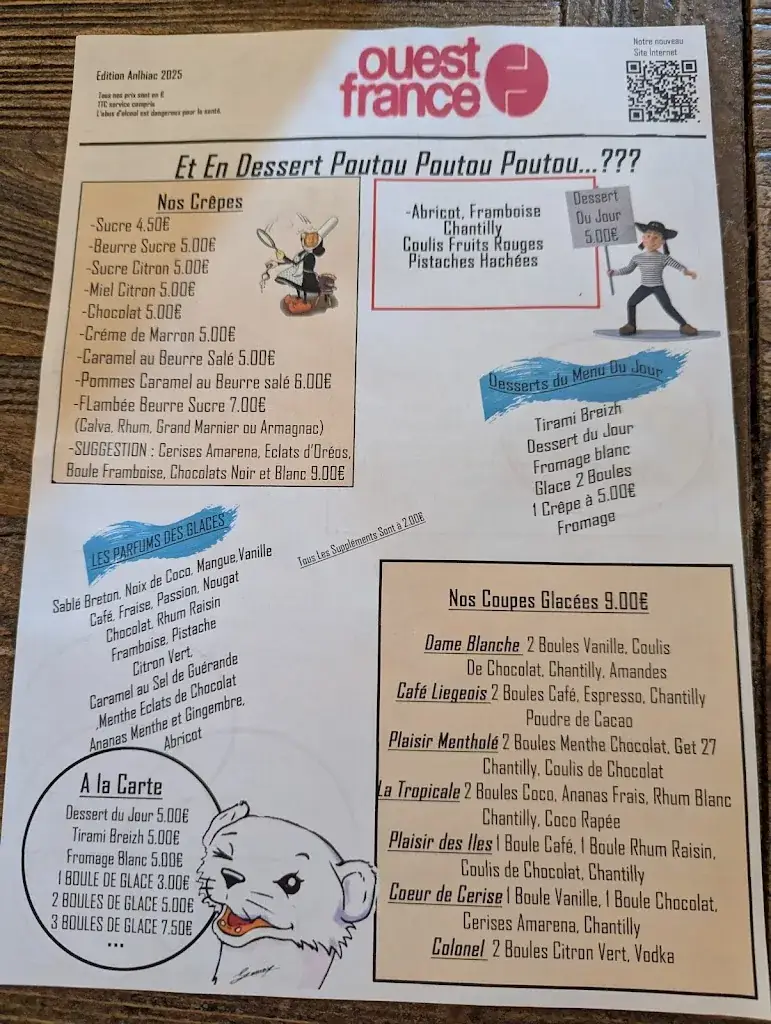 Edition Anlhiac 2025
Tous nos prix sont en €
TTC service compris
L'abus d'alcool est dangereux pour la santé.
ouest
france
Notre nouveau
Site Internet
Et En Dessert Poutou Poutou Poutou...???
Nos Crêpes
-Sucre 4.50€
-Beurre Sucre 5.00€
-Sucre Citron 5.00€
-Miel Citron 5.00€
-Chocolat 5.00€
-Créme de Marron 5.00€
-Caramel au Beurre Salé 5.00€
-Pommes Caramel au Beurre salé 6.00€
-FLambée Beurre Sucre 7.00€
(Calva, Rhum, Grand Marnier ou Armagnac)
-SUGGESTION : Cerises Amarena, Eclats d'Oréos,
Boule Framboise, Chocolats Noir et Blanc 9.00€
-Abricot, Framboise
Chantilly
Coulis Fruits Rouges
Pistaches Hachées
Dessert
Du Jour
5.00€
Desserts du Menu Du Jour
Tirami Breizh
Dessert du Jour
Fromage blanc
Glace 2 Boules
1 Crêpe à 5.00€
Fromage
LES PARFUMS DES GLACES
Sablé Breton, Noix de Coco, Mangue,Vanille
Café, Fraise, Passion, Nougat
Chocolat, Rhum Raisin
Framboise, Pistache
Citron Vert,
Caramel au Sel de Guérande
,Menthe Eclats de Chocolat
Ananas Menthe et Gingembre,
Abricot
Tous Les Suppléments Sont à 2.00€
A la Carte
Dessert du Jour 5.00€
Tirami Breizh 5.00€
Fromage Blanc 5.00€
1 BOULE DE GLACE 3.00€
2 BOULES DE GLACE 5.00€
3 BOULES DE GLACE 7.50€
...
Nos Coupes Glacées 9.00€
Dame Blanche 2 Boules Vanille, Coulis
De Chocolat, Chantilly, Amandes
Café Liegeois 2 Boules Café, Espresso, Chantilly
Poudre de Cacao
Plaisir Mentholé 2 Boules Menthe Chocolat, Get 27
Chantilly, Coulis de Chocolat
La Tropicale 2 Boules Coco, Ananas Frais, Rhum Blanc
Chantilly, Coco Rapée
Plaisir des Iles 1 Boule Café, 1 Boule Rhum Raisin,
Coulis de Chocolat, Chantilly
Coeur de Cerise 1 Boule Vanille, 1 Boule Chocolat,
Cerises Amarena, Chantilly
Colonel 2 Boules Citron Vert, Vodka